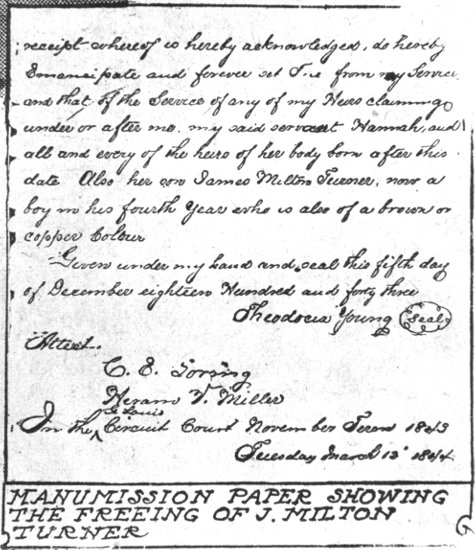 receipt whereof is hereby acknowledged, do hereby
Emancipate and forever set Free from my Service
and that of the Service of any of my Heirs claiming
under or after me. my said servant Hannah, and
all and every of the heirs of her body born after this
date Also her son James Milton Turner, now a
boy in his fourth Year who is also of a brown or
copper Colour
Given under my hand and seal this fifth day
of December eighteen Hundred and forty three
Theodocia Young (Seal)
Attest.
C. E. Loring
Hiram V. Miller
In the St Louis Circuit Court November Term 1843
Tuesday March 12" 1844.
MANUMISSION PAPER SHOWING
THE FREEING OF J. MILTON
TURNER
G